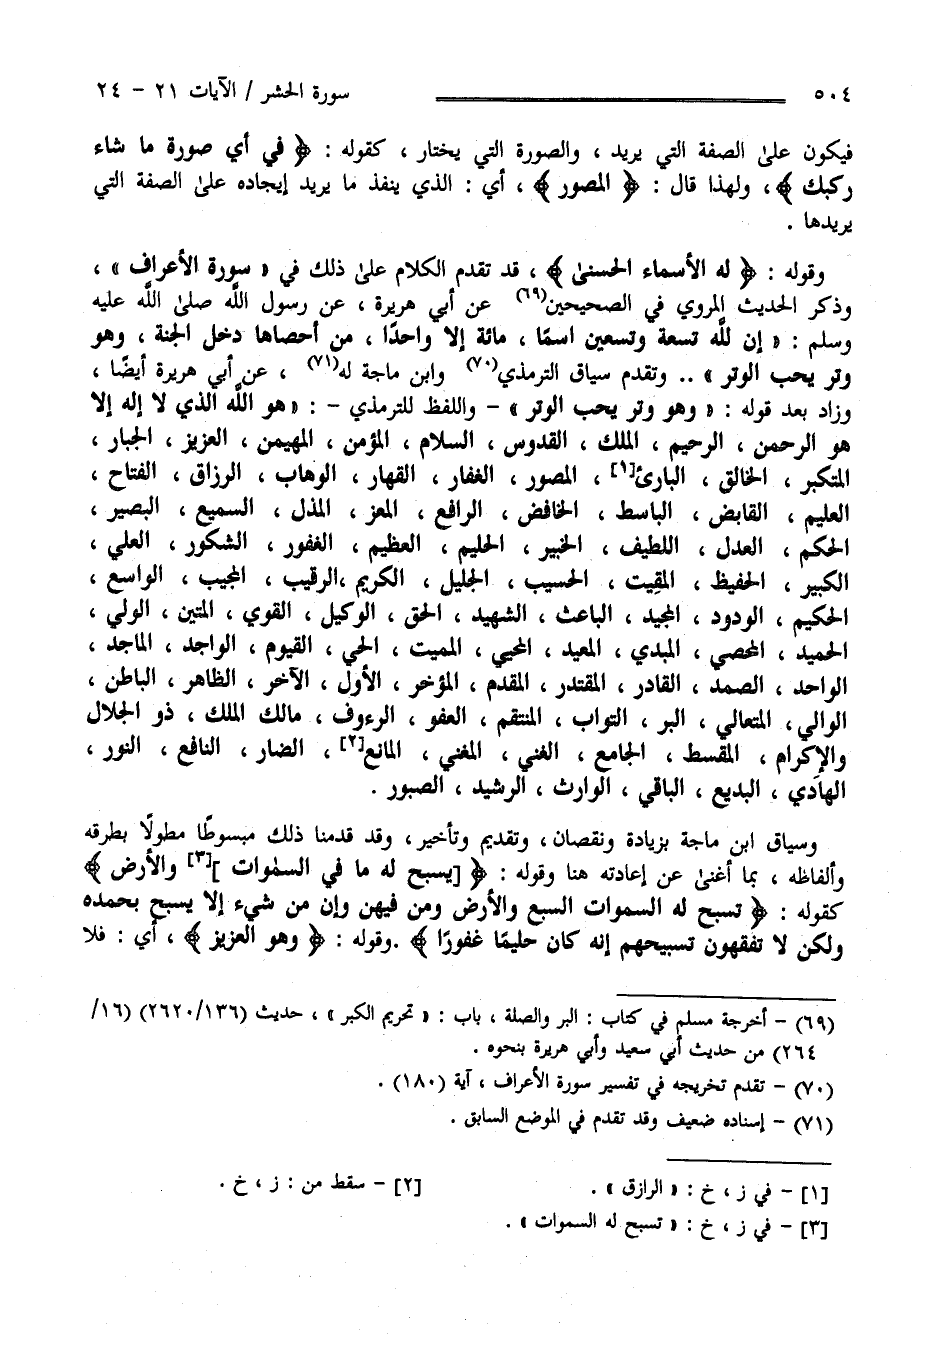 ٥٠٤ سورة الحشر / الآيات ٢١ - ٢٤
فيكون على الصفة التي يريد ، والصورة التي يختار ، كقوله : ﴿ في أي صورة ما شاء
ركبك ﴾ ، ولهذا قال : ﴿ المصور ﴾ ، أي : الذي ينفذ ما يريد إيجاده على الصفة التي
يريدها .
وقوله : ﴿ له الأسماء الحسنى ﴾ ، قد تقدم الكلام على ذلك في « سورة الأعراف » ،
وذكر الحديث المروي في الصحيحين(٦٩) عن أبي هريرة ، عن رسول الله صلى الله عليه
وسلم : « إن لله تسعة وتسعين اسمًا ، مائة إلا واحدًا ، من أحصاها دخل الجنة ، وهو
وتر يحب الوتر » .. وتقدم سياق الترمذي(٧٠) وابن ماجة له(٧١) ، عن أبي هريرة أيضًا ،
وزاد بعد قوله : « وهو وتر يحب الوتر » - واللفظ للترمذي - : « هو الله الذي لا إله إلا
هو الرحمن ، الرحيم ، الملك ، القدوس ، السلام ، المؤمن ، المهيمن ، العزيز ، الجبار ،
المتكبر ، الخالق ، البارئ[١] ، المصور ، الغفار ، القهار ، الوهاب ، الرزاق ، الفتاح ،
العليم ، القابض ، الباسط ، الخافض ، الرافع ، المعز ، المذل ، السميع ، البصير ،
الحكم ، العدل ، اللطيف ، الخبير ، الحليم ، العظيم ، الغفور ، الشكور ، العلي ،
الكبير ، الحفيظ ، المقيت ، الحسيب ، الجليل ، الكريم ،الرقيب ، المجيب ، الواسع ،
الحكيم ، الودود ، المجيد ، الباعث ، الشهيد ، الحق ، الوكيل ، القوي ، المتين ، الولي ،
الحميد ، المحصي ، المبدي ، المعيد ، المحيي ، المميت ، الحي ، القيوم ، الواجد ، الماجد ،
الواحد ، الصمد ، القادر ، المقتدر ، المقدم ، المؤخر ، الأول ، الآخر ، الظاهر ، الباطن ،
الوالي ، المتعالي ، البر ، التواب ، المنتقم ، العفو ، الرءوف ، مالك الملك ، ذو الجلال
والإكرام ، المقسط ، الجامع ، الغني ، المغني ، المانع[٢] ، الضار ، النافع ، النور ،
الهادي ، البديع ، الباقي ، الوارث ، الرشيد ، الصبور .
وسياق ابن ماجة بزيادة ونقصان ، وتقديم وتأخير ، وقد قدمنا ذلك مبسوطًا مطولًا بطرقه
وألفاظه ، بما أغنى عن إعادته هنا وقوله : ﴿ [يسبح له ما في السموات ][٣] والأرض ﴾
كقوله : ﴿ تسبح له السموات السبع والأرض ومن فيهن وإن من شيء إلا يسبح بحمده
ولكن لا تفقهون تسبيحهم إنه كان حليمًا غفورًا ﴾ .وقوله : ﴿ وهو العزيز ﴾ ، أي : فلا
(٦٩) - أخرجة مسلم في كتاب : البر والصلة ، باب : « تحريم الكبر » ، حديث (٢٦٢٠/١٣٦) (١٦/
٢٦٤) من حديث أبي سعيد وأبي هريرة بنحوه .
(٧٠) - تقدم تخريجه في تفسير سورة الأعراف ، آية (١٨٠) .
(٧١) - إسناده ضعيف وقد تقدم في الموضع السابق .
[١] - في ز ، خ : « الرازق » . [٢] - سقط من : ز ، خ .
[٣] - في ز ، خ : « تسبح له السموات » .